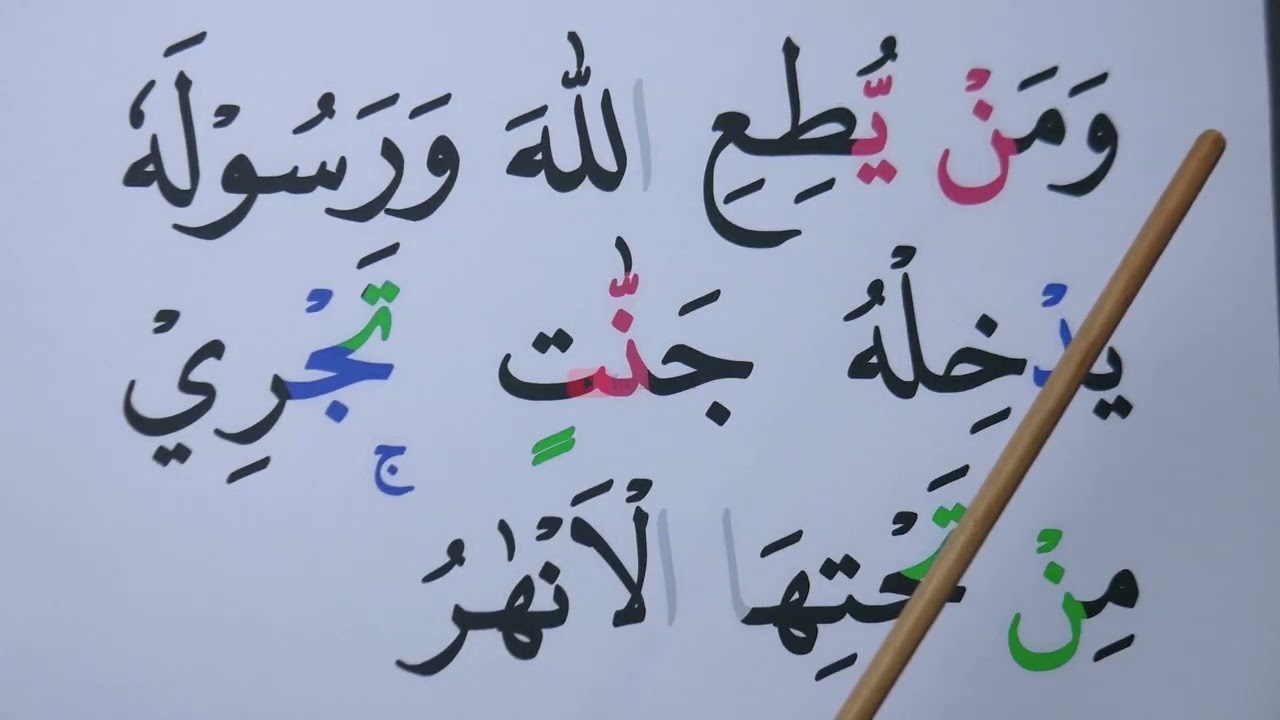 وَمَنْ يُّطِعِ اللّٰهَ وَرَسُوْلَهٗ
يدْخِلْهُ جَنّٰتٍ تَجْرِيْ
ج
مِنْ تَحْتِهَا الْاَنْهٰرُ